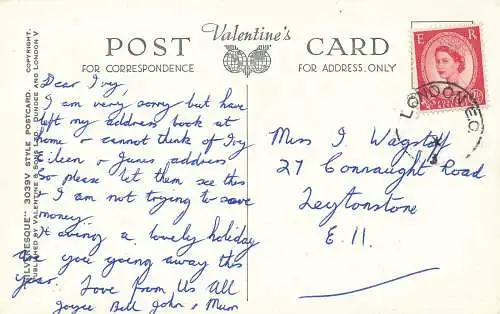 Valentine's
POST CARD
FOR CORRESPONDENCE
FOR ADDRESS ONLY
E R
LONDON
Dear Ivy,
I am very sorry but have
left my address book at
home & cannot think of Ivy
Eileen & Junes address.
So please let them see this
& I am not trying to save
money.
Having a lovely holiday
are you going away this
year. Love from Us All
Joyce Bill John & Mum
Miss I. Wagstaff
27 Connaught Road
Leytonstone
E.11.
3039V STYLE POSTCARD. COPYRIGHT.
PUBLISHED BY VALENTINE & SONS LTD. DUNDEE AND LONDON V